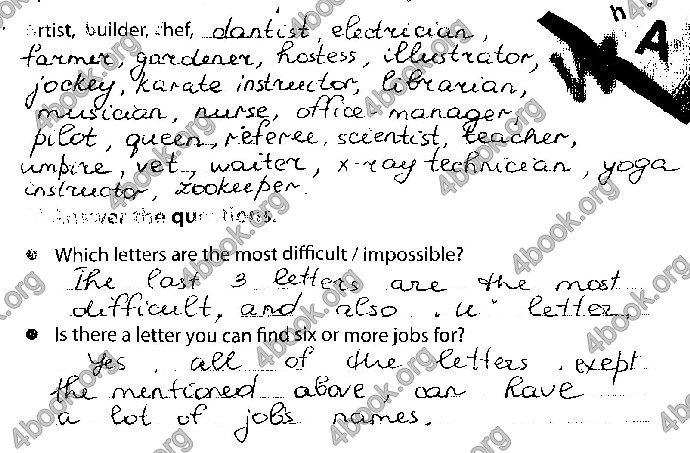 artist, builder, chef, dantist, electrician,
farmer, gardener, hostess, illustrator,
jockey, karate instructor, librarian,
musician, nurse, office-manager,
pilot, queen, referee, scientist, teacher,
umpire, vet, waiter, x-ray technician, yoga
instructor, zookeeper.
Answer the questions.
Which letters are the most difficult / impossible?
The last 3 letters are the most
difficult, and also "u" letter.
Is there a letter you can find six or more jobs for?
Yes, all of the letters, exept
the mentioned above, can have
a lot of jobs names.
4book.org